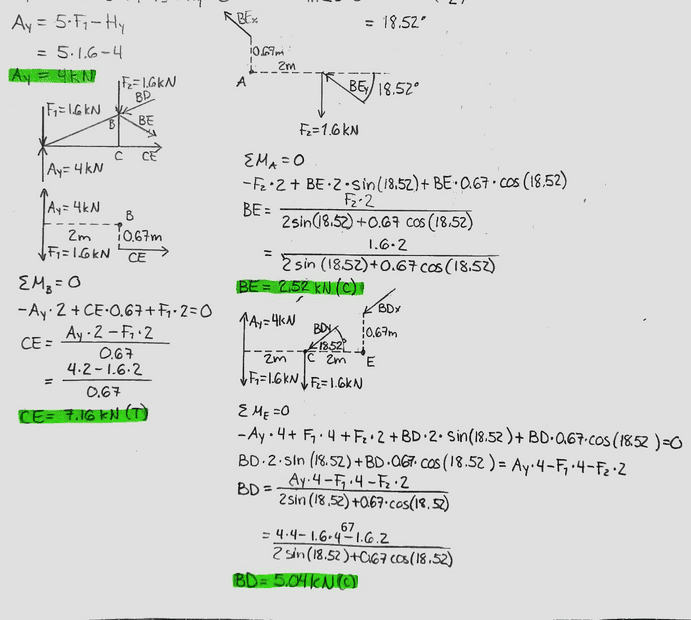 Ay = 5·F₁-Hy
= 5·1.6-4
Ay = 4kN
F₂=1.6kN
BD
F₁=1.6kN
B
BE
C
CE
Ay=4kN
Ay=4kN
B
2m
0.67m
F₁=1.6kN
CE
ΣM_B=0
-Ay·2+CE·0.67+F₁·2=0
CE= Ay·2-F₁·2
0.67
= 4·2-1.6·2
0.67
CE= 7.16kN(T)
BEx
= 18.52°
0.67m
A
2m
BEy
18.52°
F₂=1.6kN
ΣM_A=0
-F₂·2+BE·2·sin(18.52)+BE·0.67·cos(18.52)
BE= F₂·2
2sin(18.52)+0.67 cos(18.52)
= 1.6·2
2sin(18.52)+0.67cos(18.52)
BE= 2.52 kN(C)
Ay=4kN
BDx
BDy
0.67m
18.52°
2m
C
2m
E
F₁=1.6kN
F₂=1.6kN
ΣM_E=0
-Ay·4+F₁·4+F₂·2+BD·2·sin(18.52)+BD·0.67·cos(18.52)=0
BD·2·sin(18.52)+BD·0.67·cos(18.52)=Ay·4-F₁·4-F₂·2
BD= Ay·4-F₁·4-F₂·2
2sin(18.52)+0.67·cos(18.52)
67
= 4·4-1.6·4-1.6·2
2sin(18.52)+0.67cos(18.52)
BD=5.04kN(C)